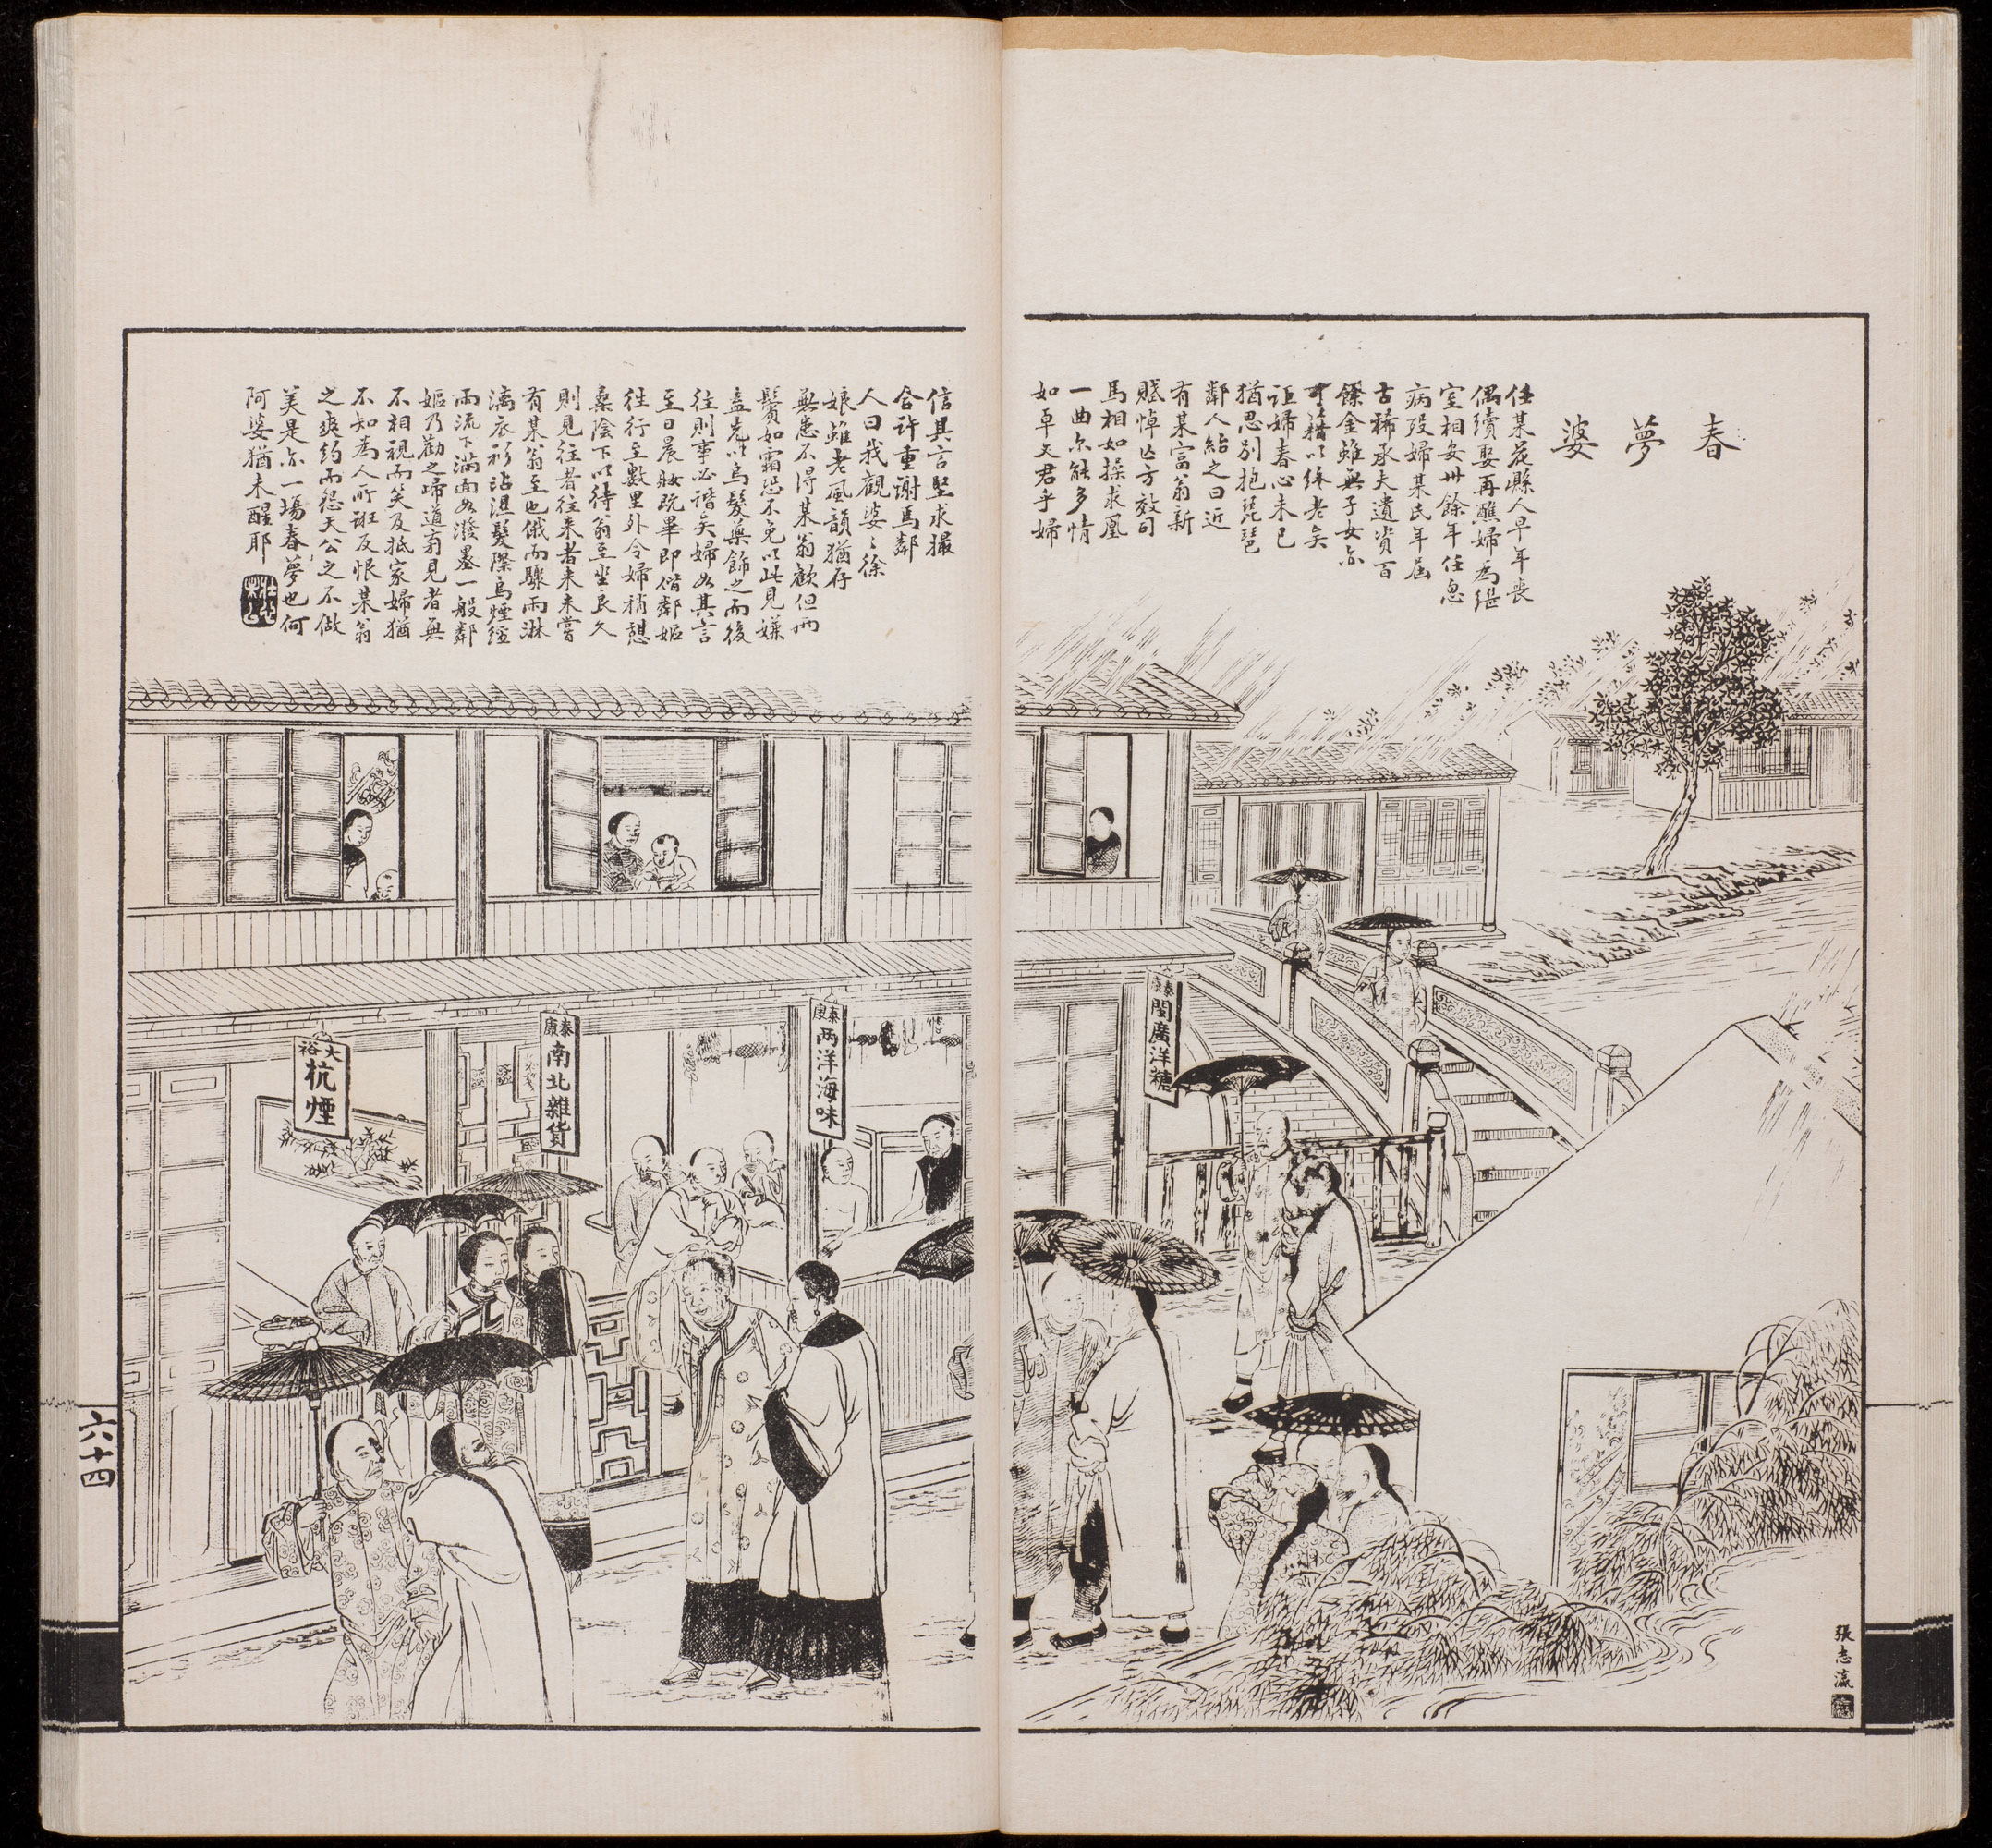 春夢婆
任某花縣人早年喪
偶續娶再醮婦為繼
室相安卅餘年任忽
病歿婦某氏年屆
古稀承夫遺資百
餘金雖無子女亦
可藉以終老矣
詎婦春心未已
猶思別抱琵琶
鄰人紿之曰近
有某富翁新
賦悼亡方效司
馬相如操求凰
一曲尔能多情
如卓文君乎婦
信其言堅求撮
合許重謝焉鄰
人曰我觀婆〻徐
娘雖老風韻猶存
無患不得某翁歡但兩
鬢如霜恐不免以此見嫌
盍先以烏髮藥飾之而後
往則事必諧矣婦如其言
至日晨妝既畢即偕鄰嫗
徃行至數里外令婦稍憩
桑陰下以待翁至坐良久
則見往者往來者來未嘗
有某翁至也俄而驟雨淋
漓衣衫沾濕髮際烏煙經
雨流下滿面如潑墨一般鄰
嫗乃勸之歸道旁見者無
不相視而笑及抵家婦猶
不知為人所誑反恨某翁
之爽約而怨天公之不做
美是亦一場春夢也何
阿婆猶未醒耶
泰康
閩廣洋糖
泰康
兩洋海味
泰康
南北雜貨
大裕
杭煙
張志瀛
六十四